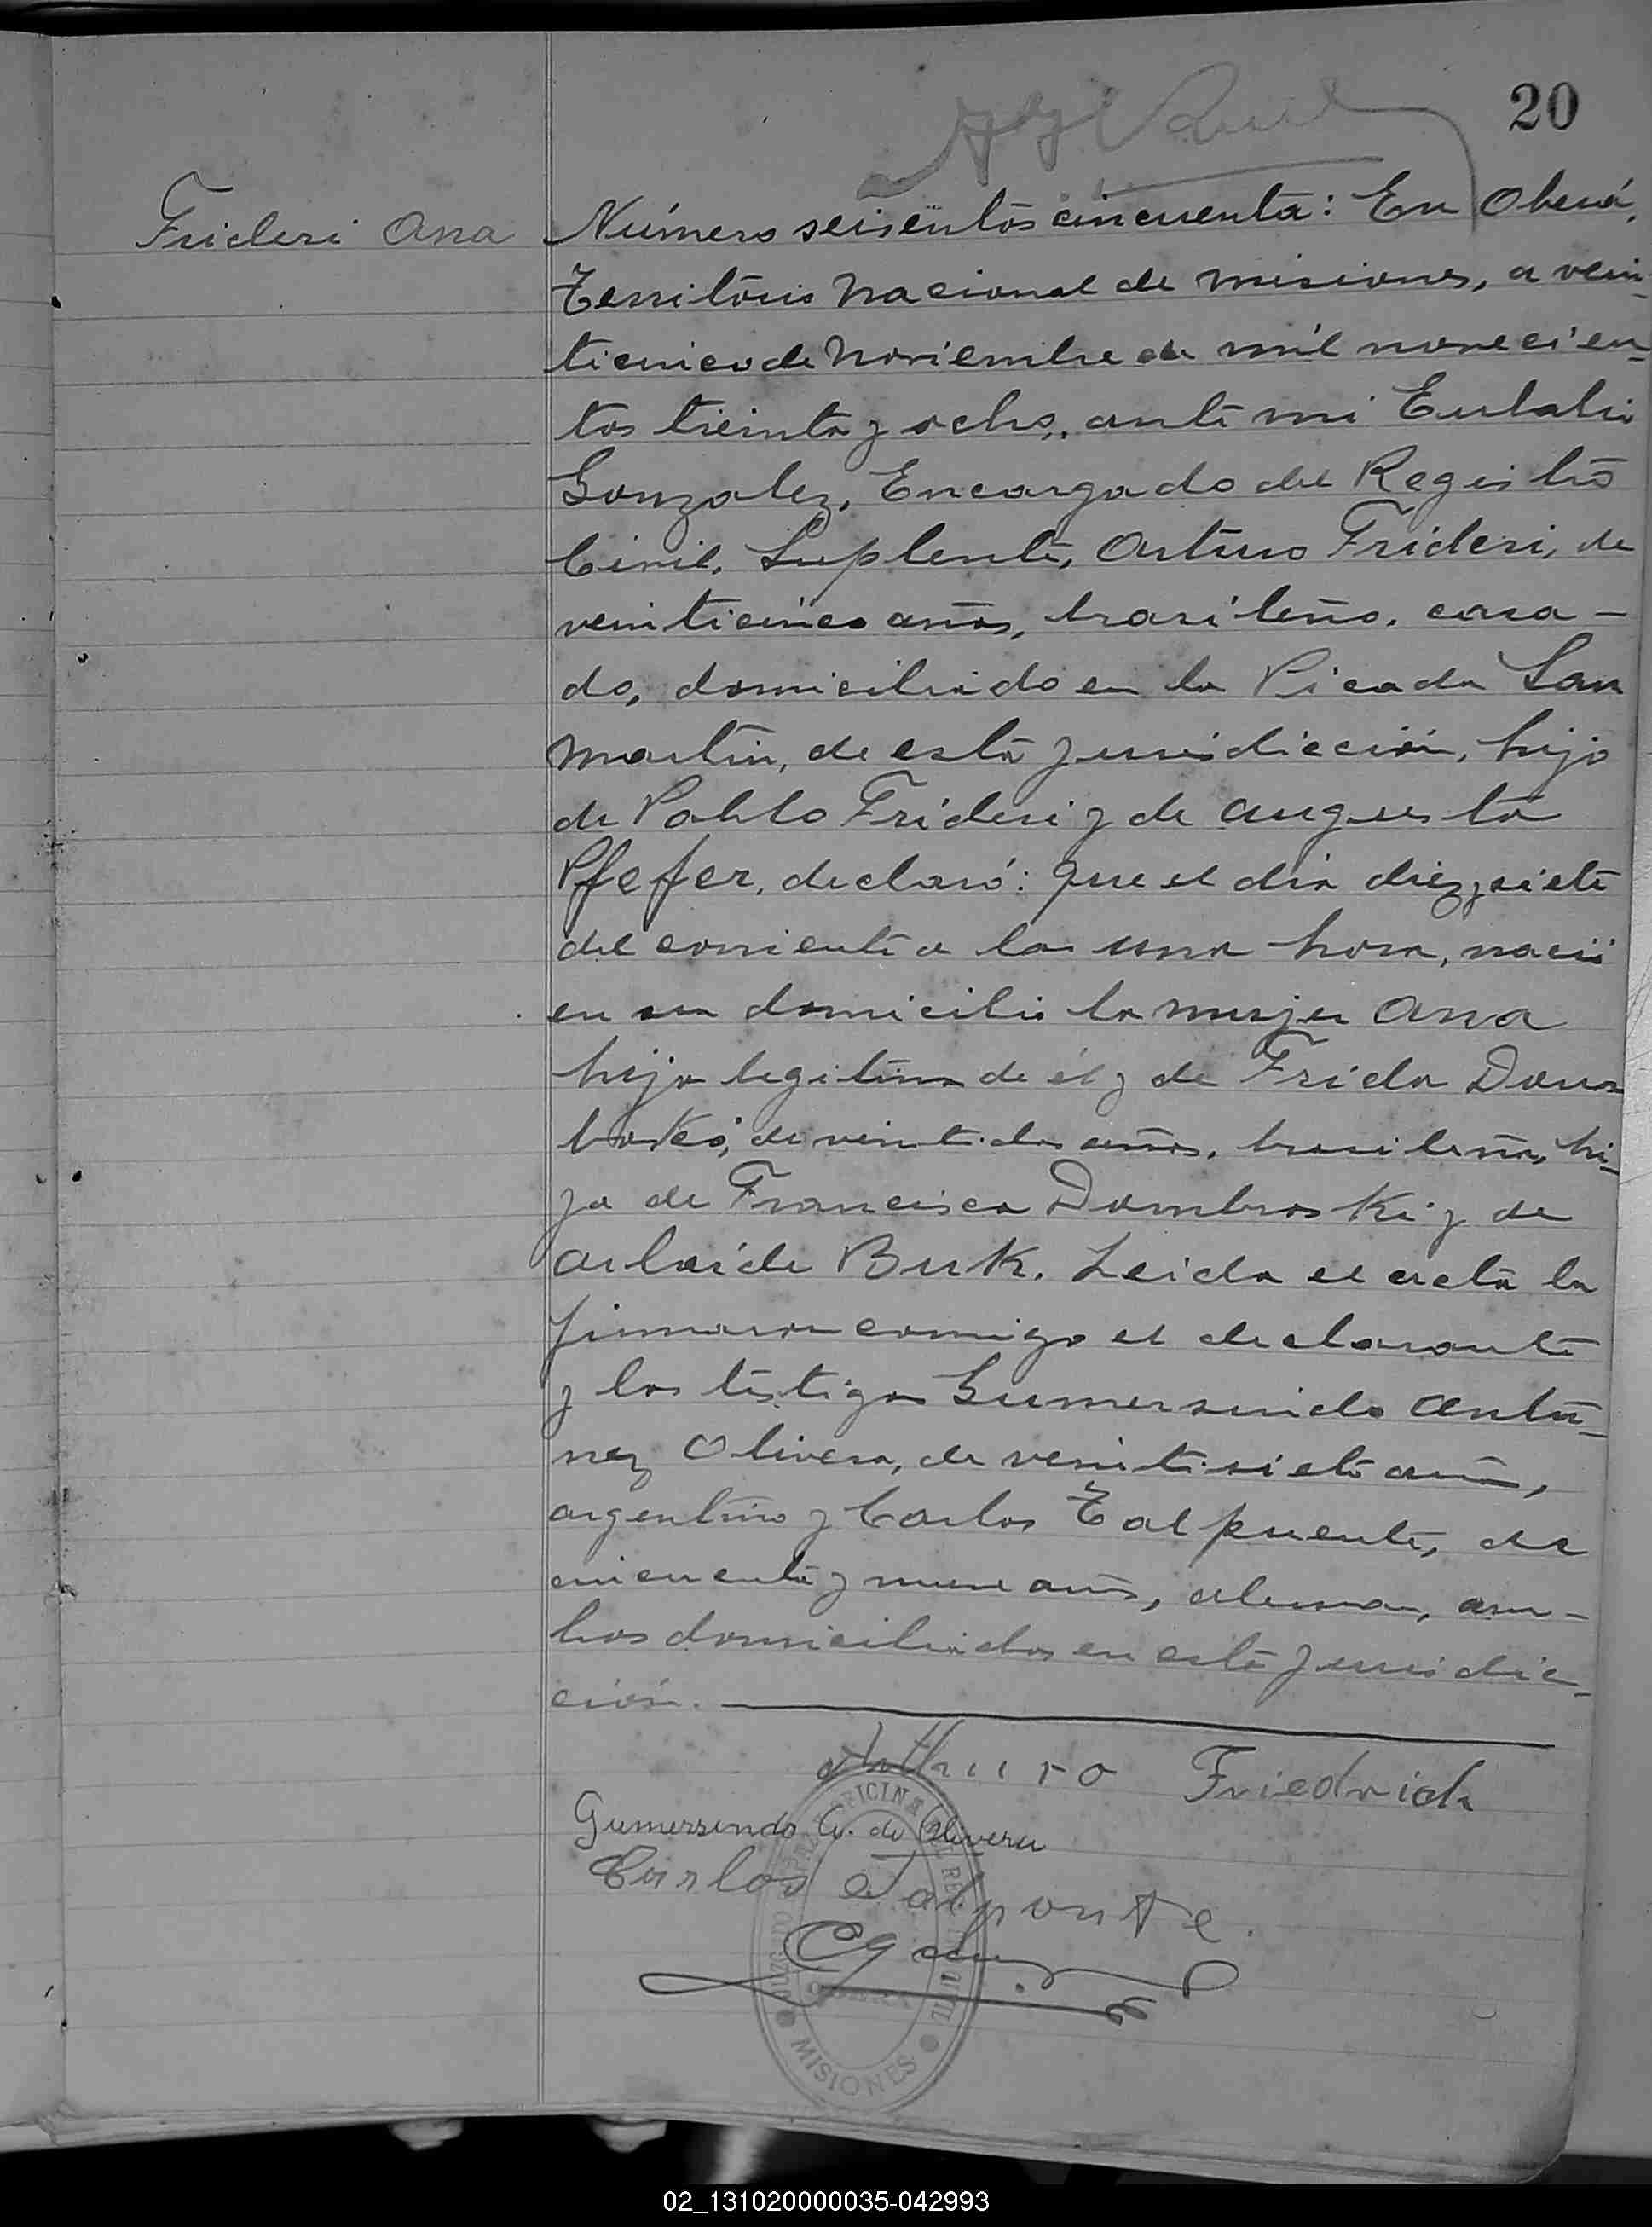 20
Frideri Ana
Número seisientos cincuenta: En Oberá,
Territorio Nacional de Misiones, a vein-
ticinco de Noviembre de mil novecien-
tos treinta y ocho, ante mi Eulalio
Gonzalez, Encargado del Registro
Civil, Suplente, Arturo Frideri, de
veinticinco años, brasileño, casa-
do, domiciliado en la Picada San
Martin, de esta jurisdiccion, hijo
de Pablo Frideri y de Augusta
Pfefer, declaró: que el dia diez y siete
del corriente a la una hora, nació
en su domicilio la mujer Ana
hija legitima de él y de Frida Dom
broski, de veintidos años, brasileña, hi-
ja de Francisco Dombroski y de
Adelaide Buk. Leida el acta la
firmaron comigo el declarante
y los testigos Gumersindo Antu-
nez Olivera, de veintisiete años,
argentino y Carlos Talpuente, de
cincuenta y nueve años, aleman, am-
bos domiciliados en esta jurisdic-
ción.
Arthuro Friedrich
Gumersendo A. de Olivera
Carlos Talponte.
OFICINA DEL REG
MISIONES
02_131020000035-042993